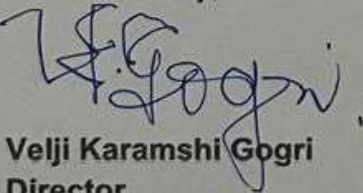 V.K.Gogri
Velji Karamshi Gogri
Director